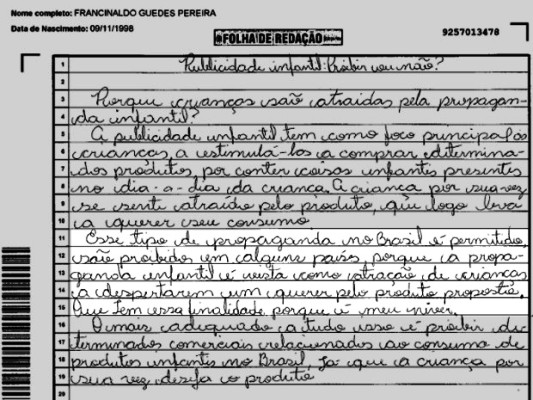 Nome completo: FRANCINALDO GUEDES PEREIRA
Data de Nascimento: 09/11/1998
FOLHA DE REDAÇÃO
9257013478
1 Publicidade infantil: Proibir ou não?
2
3 Porque crianças são atraidas pela propagan-
4 da infantil?
5 A publicidade infantil tem como foco principal as
6 crianças, a estimulá-las a comprar determina-
7 dos produtos, por conter coisas infantis presentes
8 no dia-a-dia da criança. A criança por sua vez
9 se sente atraído pelo produto, que logo leva
10 a querer seu consumo
11 Esse tipo de propaganda no Brasil é permitido,
12 são proibidos em alguns país, porque a propa-
13 ganda infantil é vista como atração de crianças
14 a despertarem um querer pelo produto proposto.
15 Que tem essa finalidade porque é meu
16 O mais adequado a tudo isso é proibir de-
17 terminados comerciais relacionados ao consumo de
18 produtos infantis no Brasil, já que a criança por
19 sua vez, deseja o produto
20